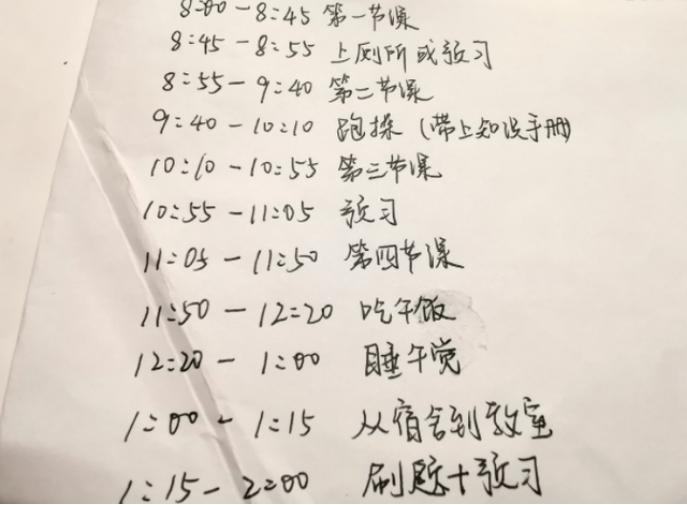 8:00-8:45 第一节课
8:45-8:55 上厕所或预习
8:55-9:40 第二节课
9:40-10:10 跑操 (带上知识手册)
10:10-10:55 第三节课
10:55-11:05 预习
11:05-11:50 第四节课
11:50-12:20 吃午饭
12:20-1:00 睡午觉
1:00-1:15 从宿舍到教室
1:15-2:00 刷题+预习